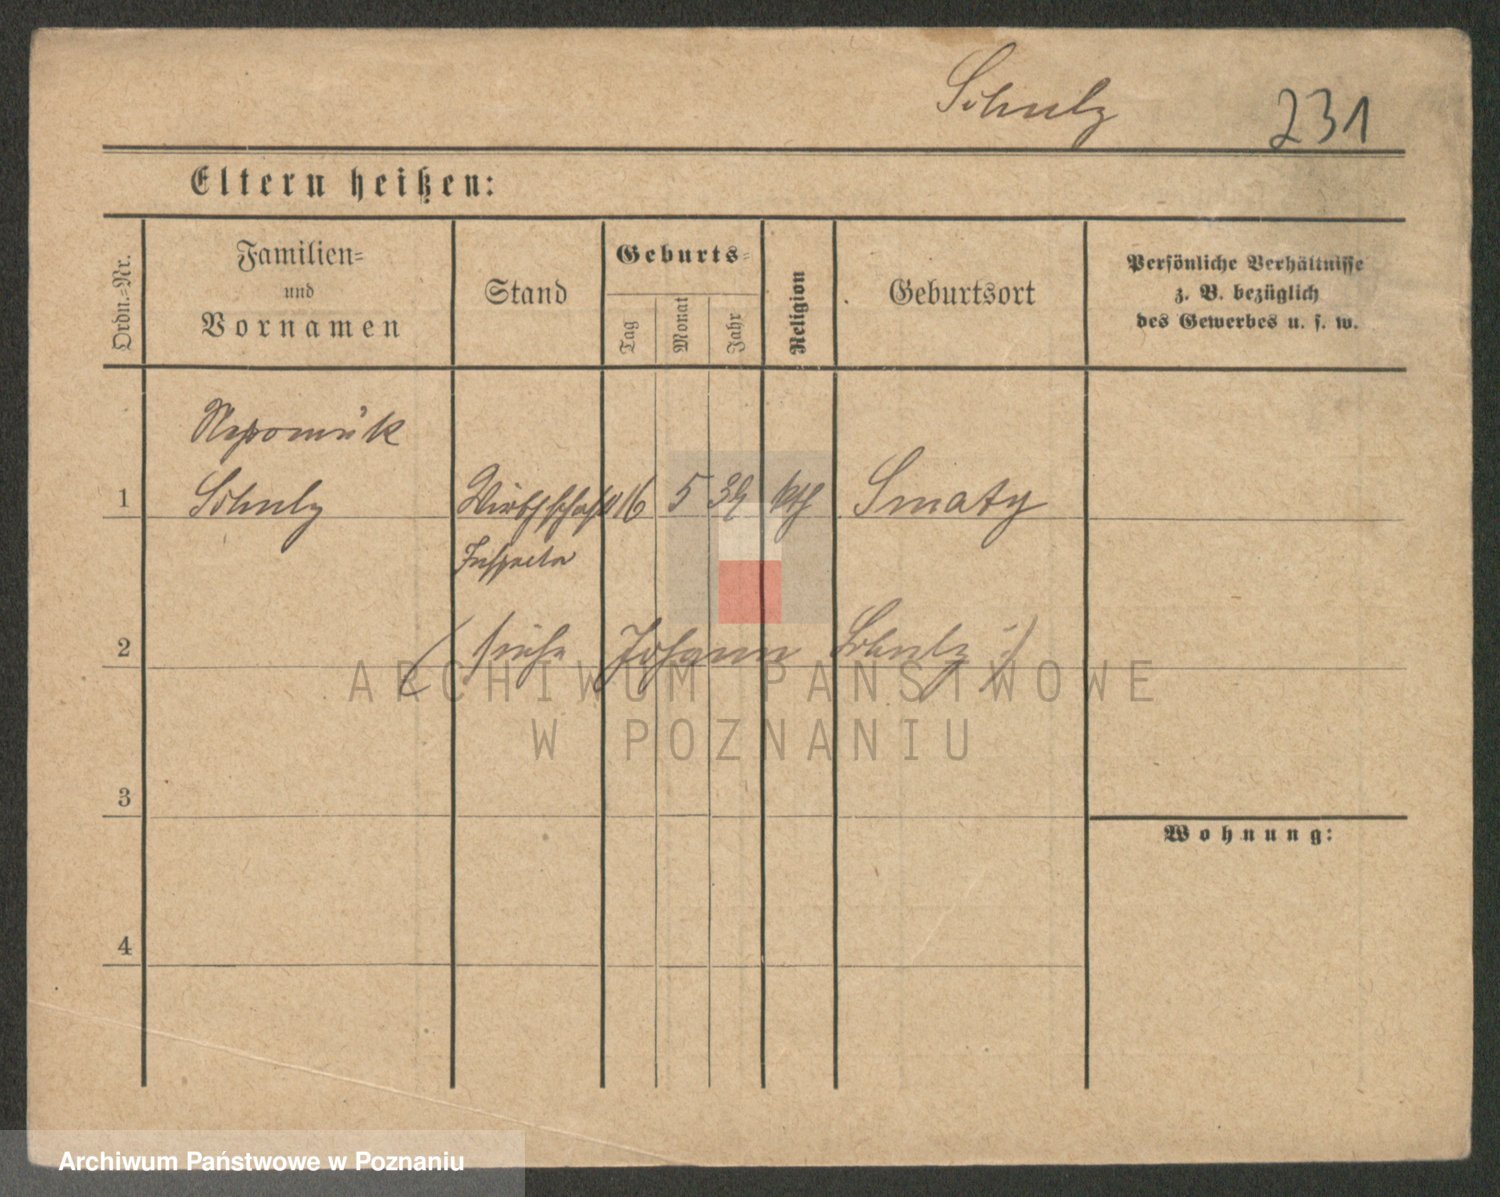 Schulz 231
Eltern heißen:
Ordn.-Nr.
Familien-
und
Vornamen
Stand
Geburts-
Tag
Monat
Jahr
Religion
Geburtsort
Persönliche Verhältnisse
z. B. bezüglich
des Gewerbes u. s. w.
Nepomuk
1 Schulz Wirthschafts 16 5 39 kth Smaty
Inspector
2 (siehe Johann Schulz :)
3
Wohnung:
4
ARCHIWUM PAŃSTWOWE
W POZNANIU
Archiwum Państwowe w Poznaniu